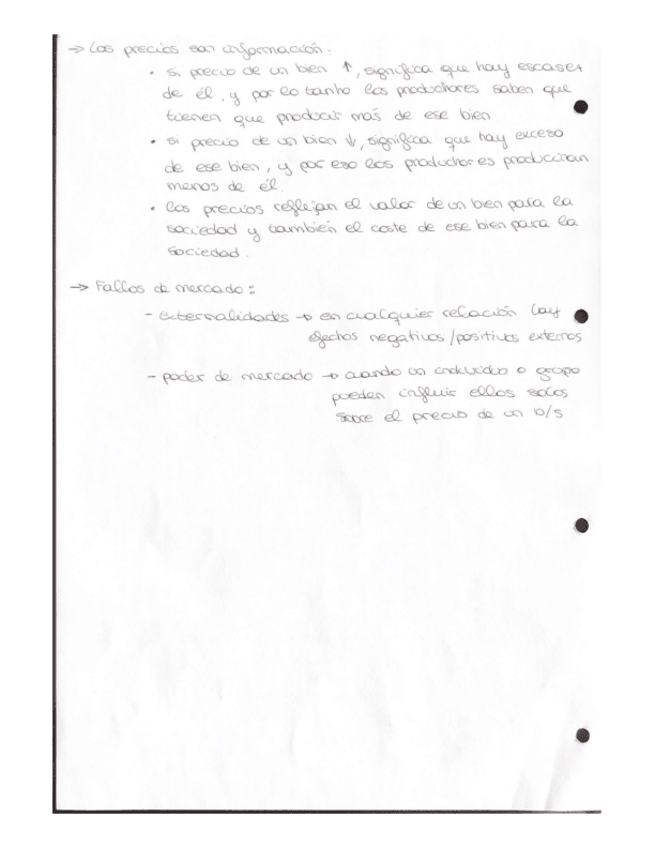 → Los precios son información:
• si precio de un bien ↑, significa que hay escasez
de él, y por lo tanto los productores saben que
tienen que producir más de ese bien
• si precio de un bien ↓, significa que hay exceso
de ese bien, y por eso los productores producirán
menos de él.
• los precios reflejan el valor de un bien para la
sociedad y también el coste de ese bien para la
sociedad.
→ Fallos de mercado:
- externalidades → en cualquier relación hay
efectos negativos/positivos externos
- poder de mercado → cuando un individuo o grupo
pueden influir ellos solos
sobre el precio de un b/s